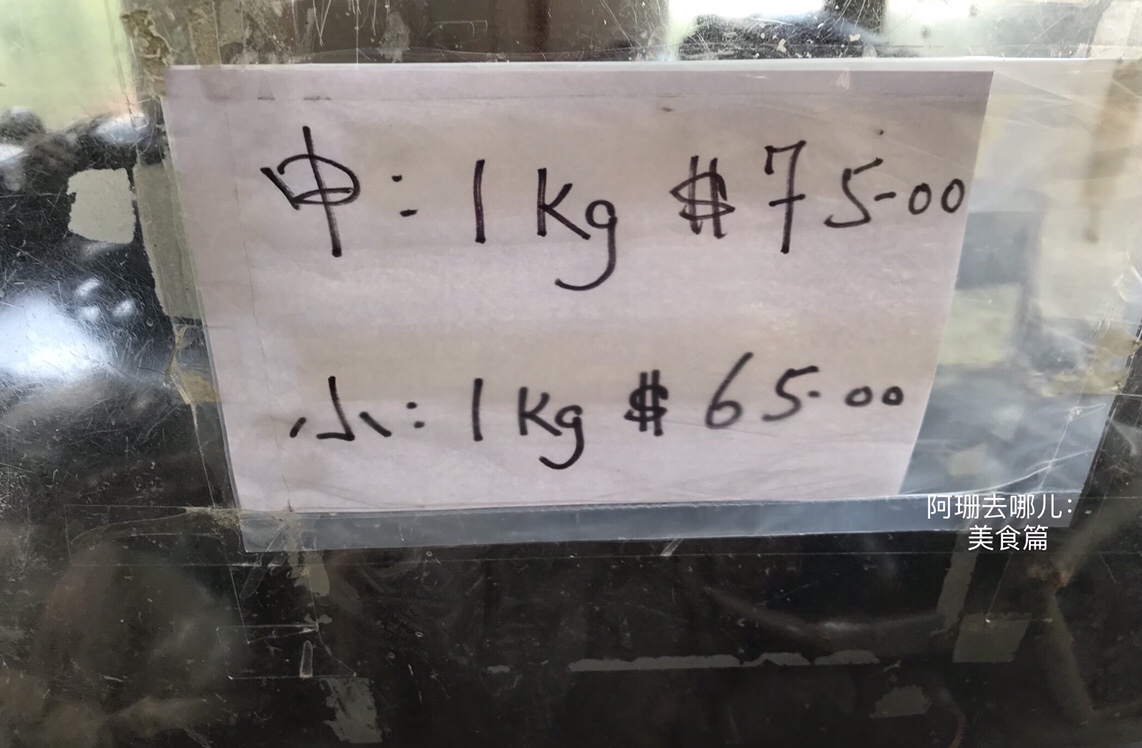 中: 1 Kg $75.00
小: 1 Kg $65.00
阿珊去哪儿:
美食篇